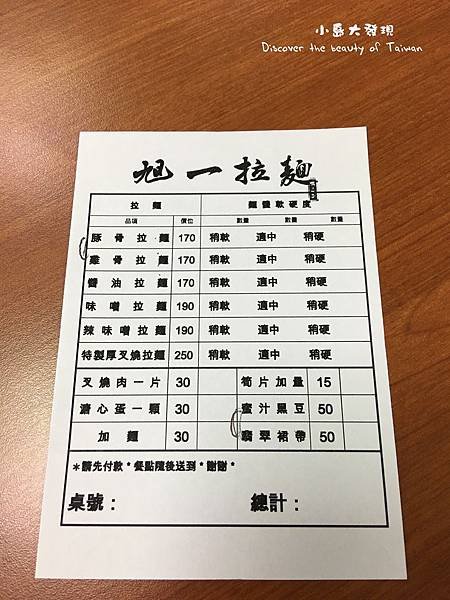 小島大發現
Discover the beauty of Taiwan
旭一拉麵
拉麵 麵體軟硬度
品項 價位 數量 數量 數量
豚骨拉麵 170 稍軟 適中 稍硬
雞骨拉麵 170 稍軟 適中 稍硬
醬油拉麵 170 稍軟 適中 稍硬
味噌拉麵 190 稍軟 適中 稍硬
辣味噌拉麵 190 稍軟 適中 稍硬
特製厚叉燒拉麵 250 稍軟 適中 稍硬
叉燒肉一片 30 筍片加量 15
溏心蛋一顆 30 蜜汁黑豆 50
加麵 30 翡翠裙帶 50
*請先付款*餐點隨後送到*謝謝*
桌號： 總計：